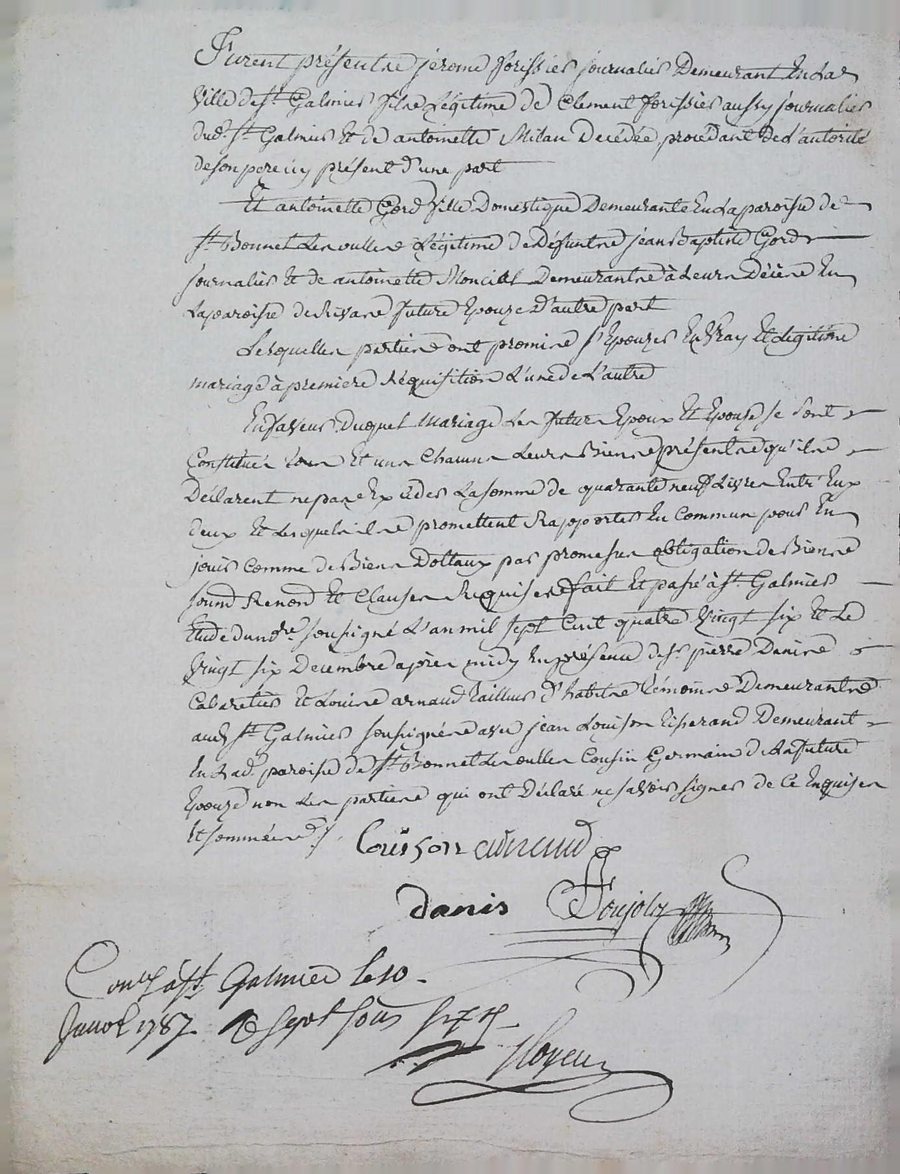 Furent présents jerome forissier journalier Demeurant En La
Ville de St. Galmier fils Légitime de Clement forissier aussy journalier
dud. St. Galmier Et de antoinette Milan Decédée, procédant de L'autorité
de son pere icy présent d'une part
Et antoinette Gord fille Domestique Demeurante En La paroisse de
St. Bonnet Les oulles Légitime de Défunts jean Baptiste Gord
journalier Et de antoinette Demeurants à Leurs Décès En
La paroisse de future Epouze D'autre part
Lesquelles parties ont promis s'Epouzer En Vray Et Légitime
mariage à premiere Réquisition L'une de L'autre
En faveur Duquel mariage Les futurs Epoux Et Epouse se sont
Constitués tous Et uns Chacuns Leurs Biens présents qu'ils
Déclarent ne pas Exceder La somme de quarante neuf Livres Entr'Eux
deux Et Lesquels ils promettent Rapporter En Commun pour En
jouir Comme de Biens Dottaux par promesses obligation de Biens
soumd. Renond. Et Clauses Requises fait Et passé à St. Galmier
Etude du nore. soussigné L'an mil sept Cent quatre Vingt six Et Le
Vingt six Decembre après midy En présence de sr. pierre Danis
Cabaretier Et Louis arnaud tailleur d'habits témoins Demeurants
aud. St. Galmier soussignés avec jean Louison Esperand Demeurant
En Lad. paroisse de St. Bonnet Les oulles Cousin Germain de La future
Epouze non Les parties qui ont Déclaré ne savoir signer de Ce Enquises
Et sommées
Louison
danis
Conlé. à St. Galmier le 10
Janvr. 1787 sept sous